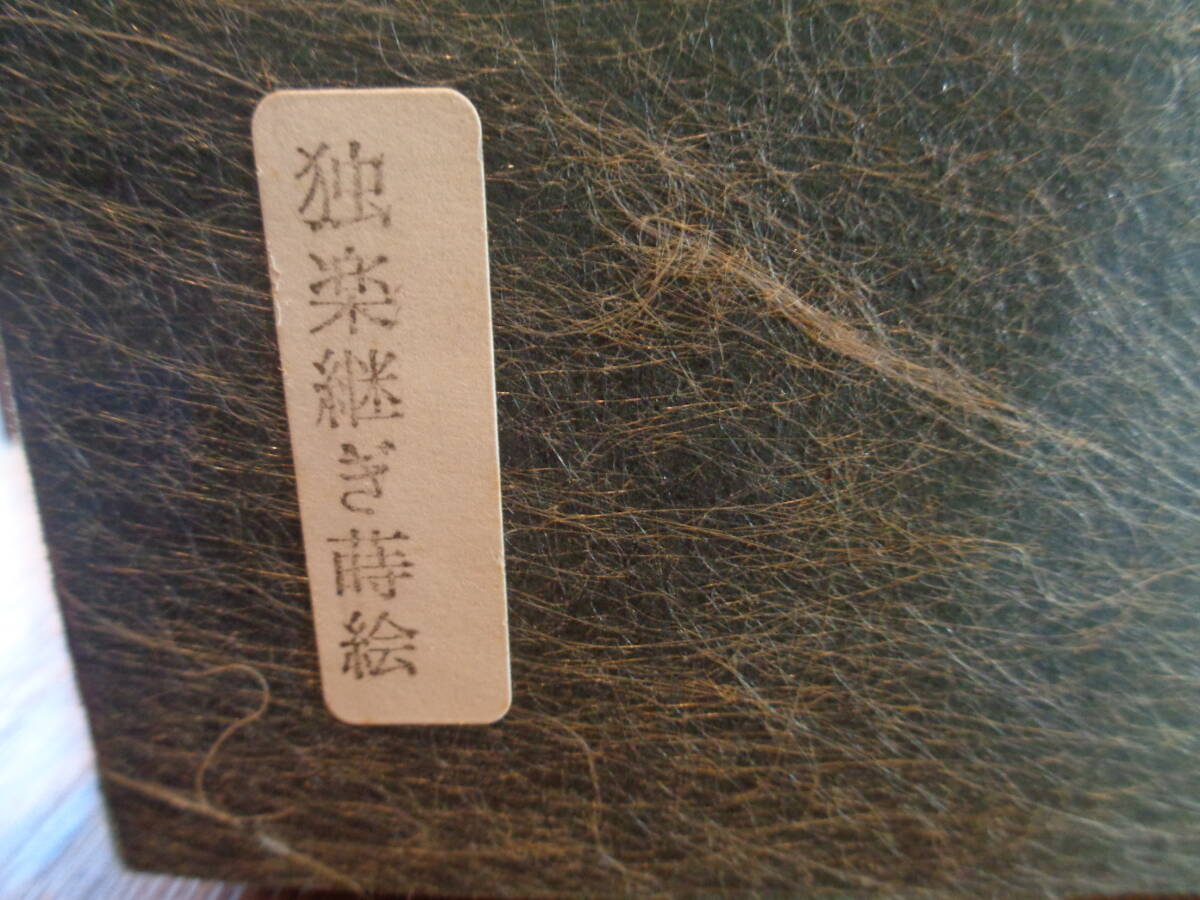 独楽継ぎ蒔絵